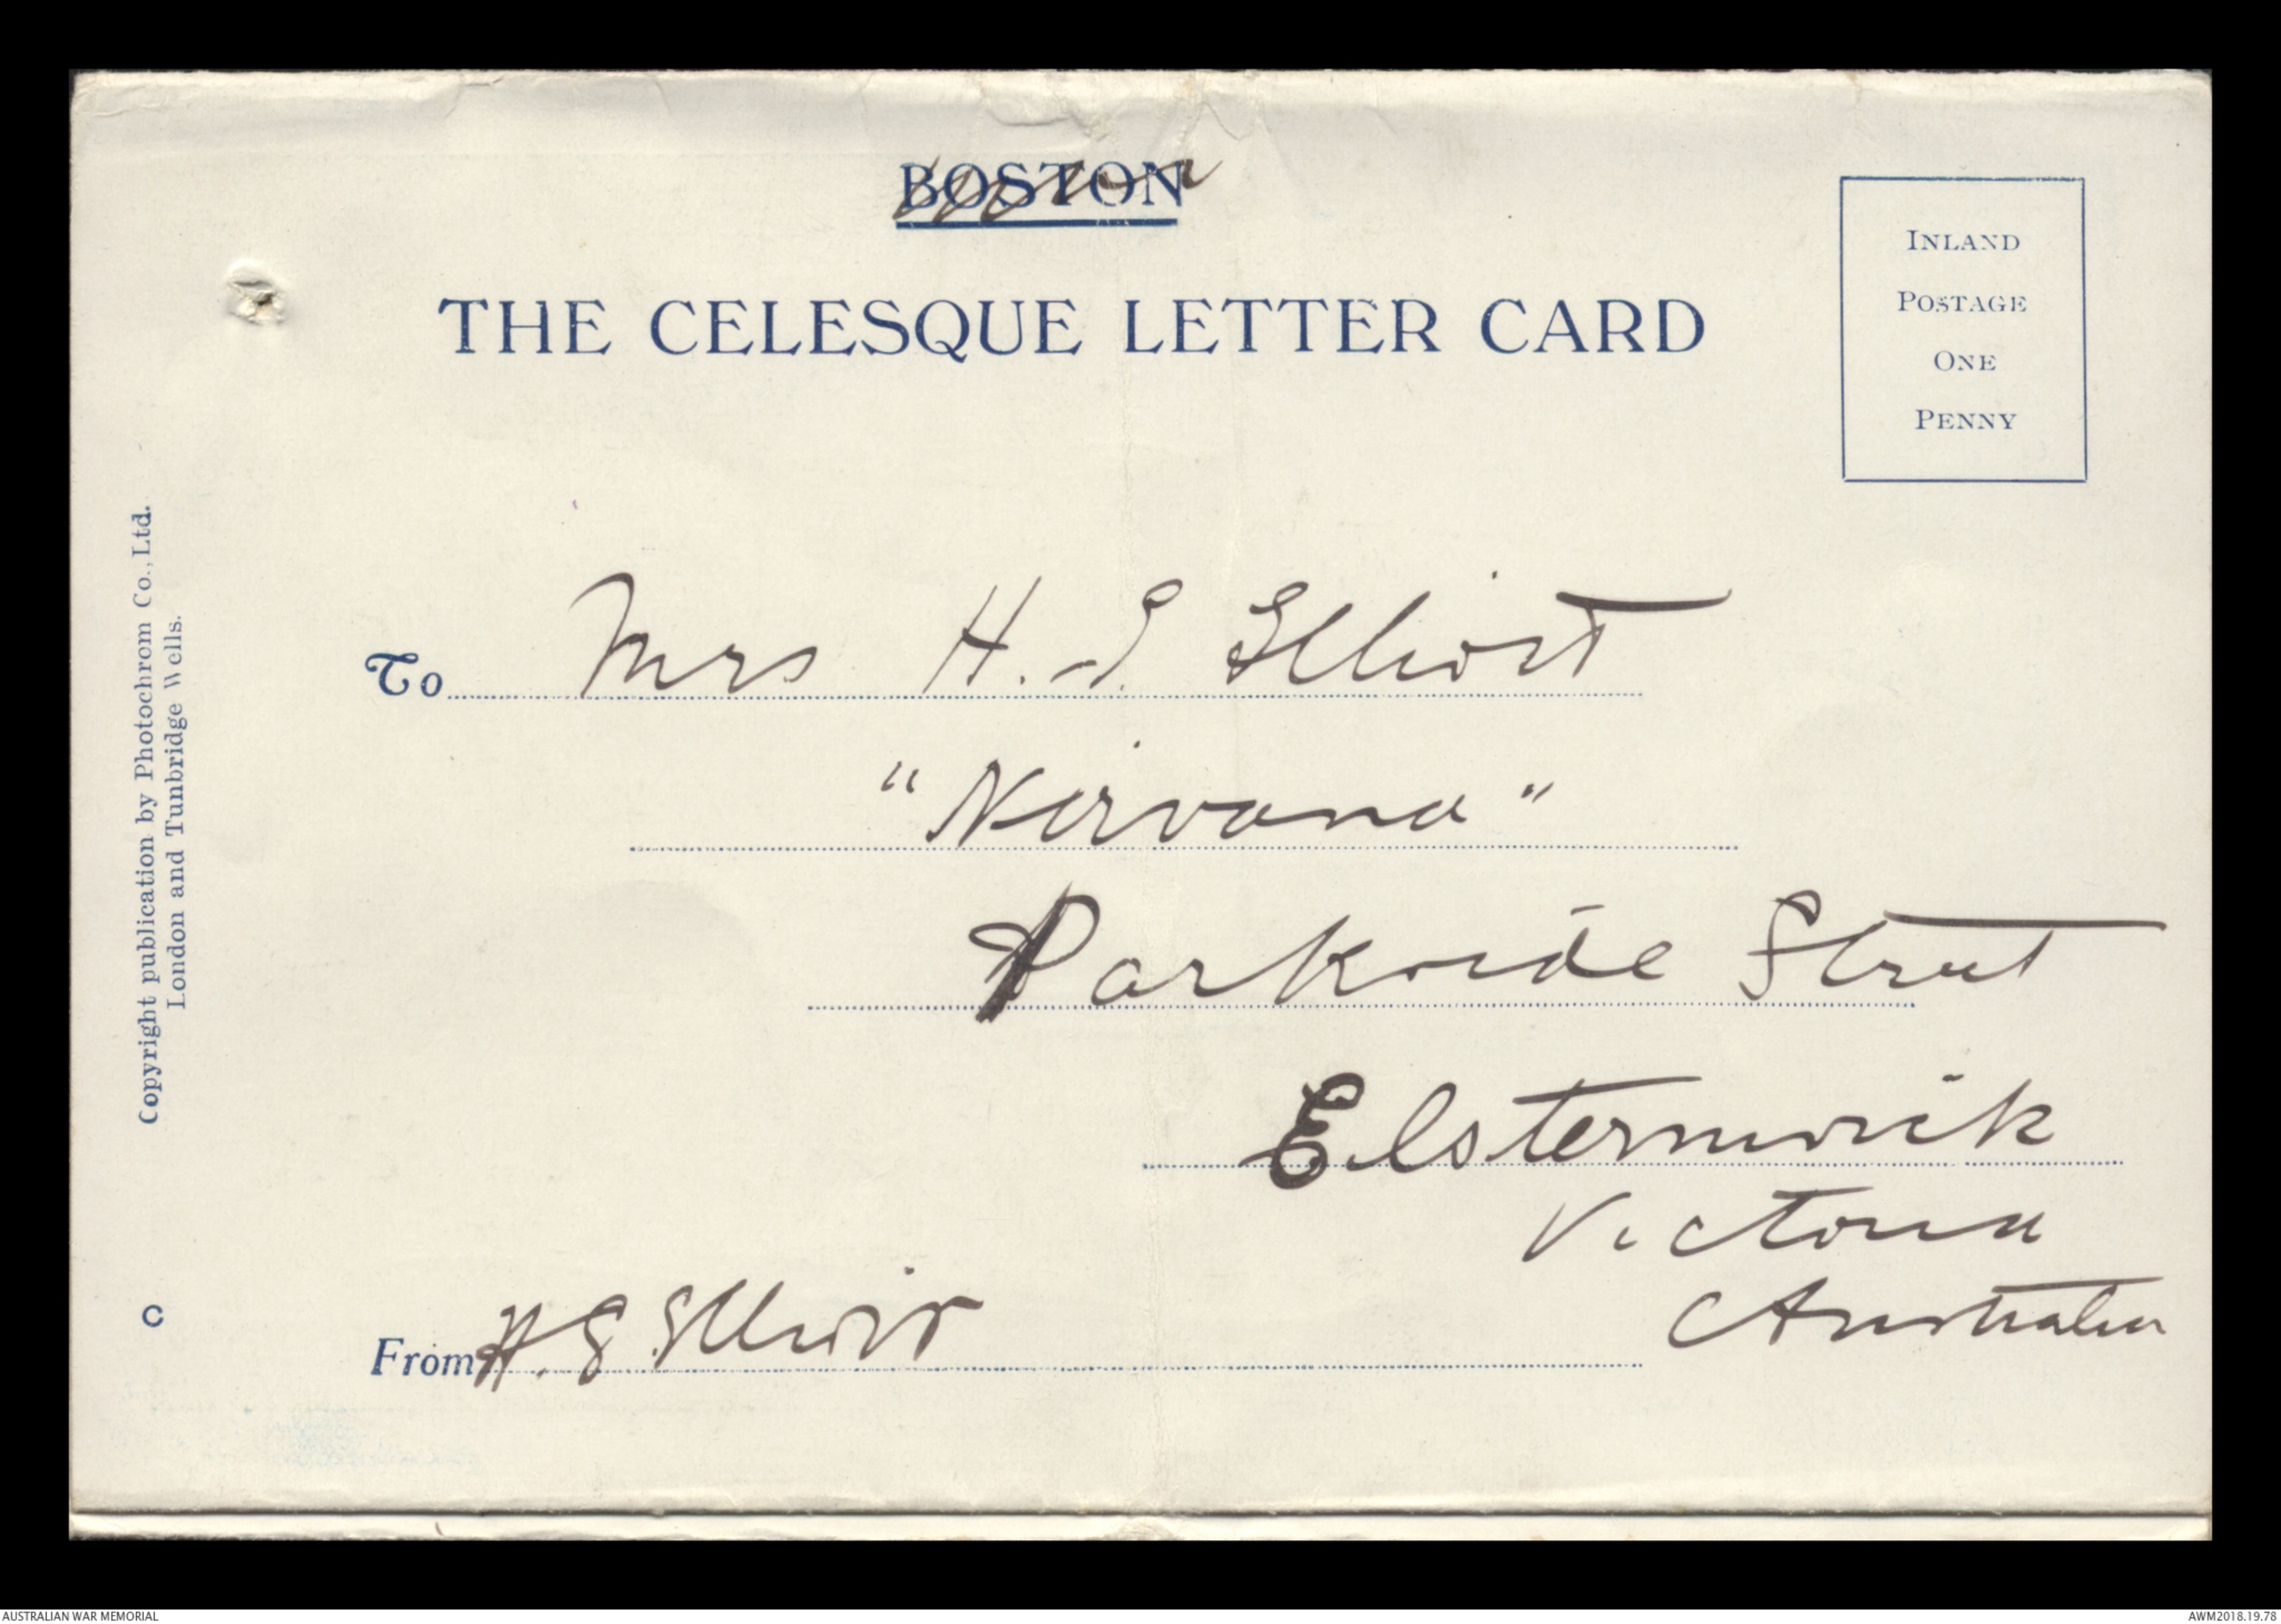 BOSTON
THE CELESQUE LETTER CARD
INLAND
POSTAGE
ONE
PENNY
Copyright publication by Photochrom Co., Ltd.
London and Tunbridge Wells.
To Mrs H. E Elliott
"Nirvana"
Parkside Street
Elsternwick
Victoria
Australia
C
From H. E. Elliott
AUSTRALIAN WAR MEMORIAL
AWM2018.19.78